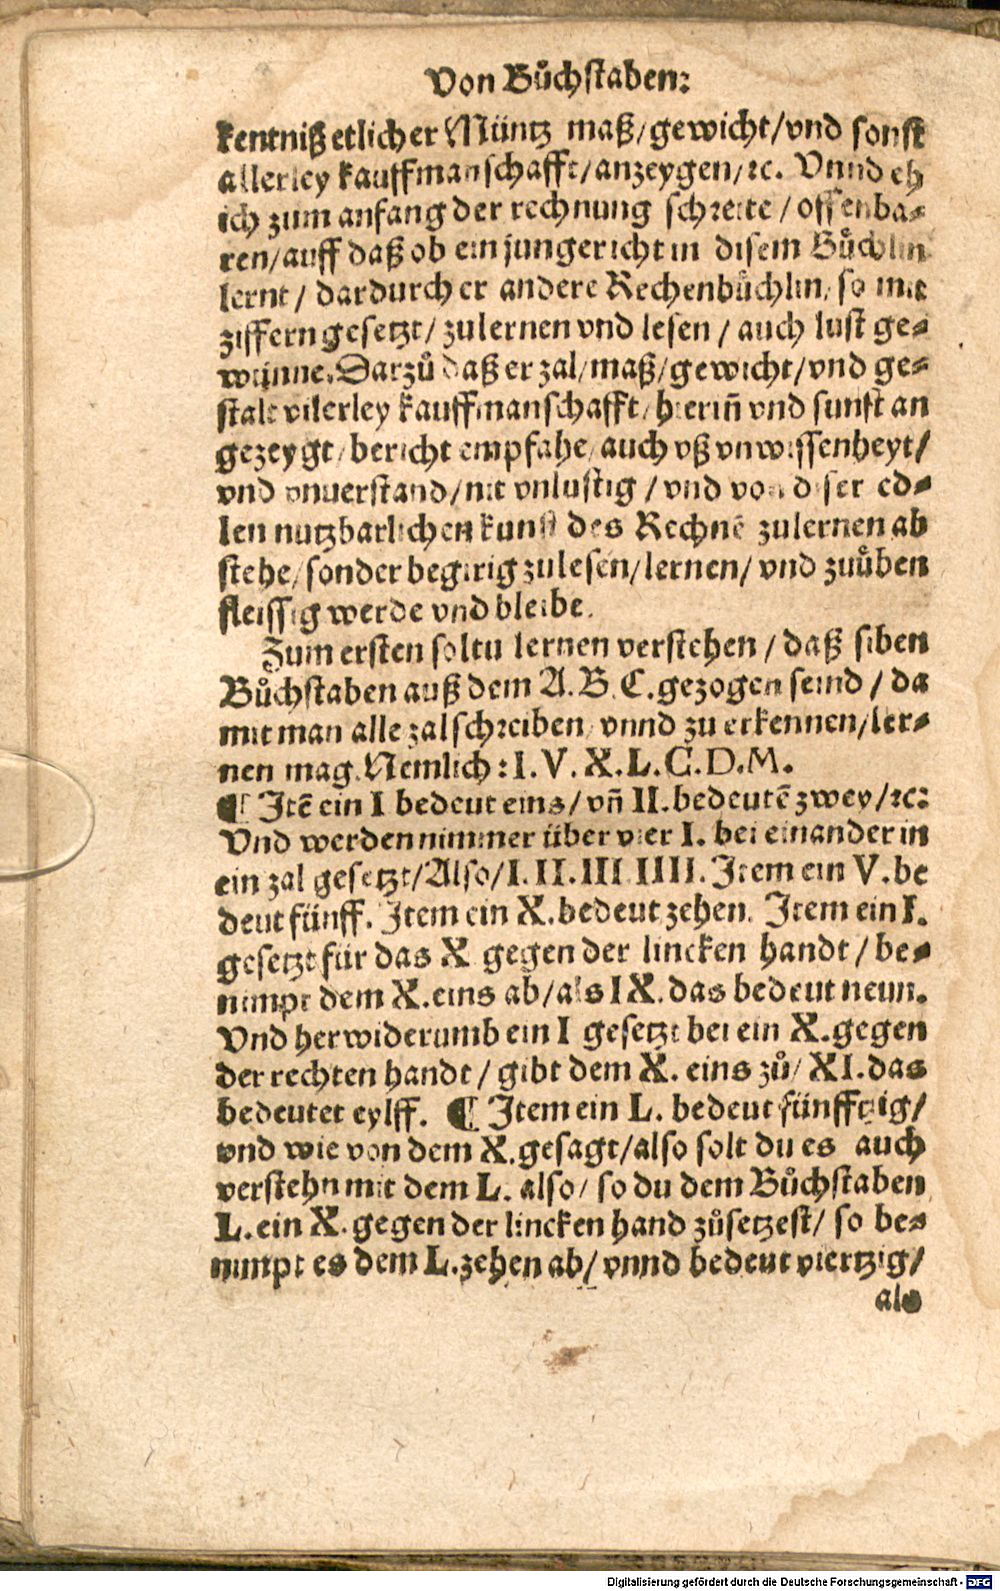 Von Bůchstaben:
kentniß etlicher Müntz maß/gewicht/vnd sonst
allerley kauffmanschafft/anzeygen/ꝛc. Vnnd eh
ich zum anfang der rechnung schreite / offenba-
ren/auff daß ob ein jungericht in disem Bůchlin
lernt / dardurch er andere Rechenbůchlin/ so mit
ziffern gesetzt/ zulernen vnd lesen / auch lust ge-
wünne. Darzů daß er zal/maß/gewicht/vnd ge-
stalt vilerley kauffmanschafft/hierin̄ vnd sunst an
gezeygt/bericht empfahe/auch vß vnwissenheyt/
vnd vnuerstand/nit vnlustig / vnd von diser ed-
len nutzbarlichen kunst des Rechnē zulernen ab
stehe/sonder begirig zulesen/lernen/ vnd zuůben
fleissig werde vnd bleibe.
Zum ersten soltu lernen verstehen / daß siben
Bůchstaben auß dem A.B.C.gezogen seind / da
mit man alle zal schreiben/ vnnd zu erkennen/ler-
nen mag. Nemlich: I. V. X. L. C. D. M.
¶ Itē ein I bedeut eins/ vn̄ II. bedeutē zwey/ꝛc:
Vnd werden nimmer über vier I. bei einander in
ein zal gesetzt/Also/I. II. III IIII. Item ein V. be
deut fünff. Item ein X. bedeut zehen. Item ein I.
gesetzt für das X gegen der lincken handt / be-
nimpt dem X. eins ab/als IX. das bedeut neun.
Vnd herwiderumb ein I gesetzt bei ein X. gegen
der rechten handt / gibt dem X. eins zů/ XI. das
bedeutet eylff. ¶ Item ein L. bedeut fünfftzig/
vnd wie von dem X. gesagt/also solt du es auch
verstehn mit dem L. also/ so du dem Bůchstaben
L. ein X. gegen der lincken hand zůsetzest/ so be-
nimpt es dem L. zehen ab/ vnnd bedeut viertzig/
als
Digitalisierung gefördert durch die Deutsche Forschungsgemeinschaft - DFG